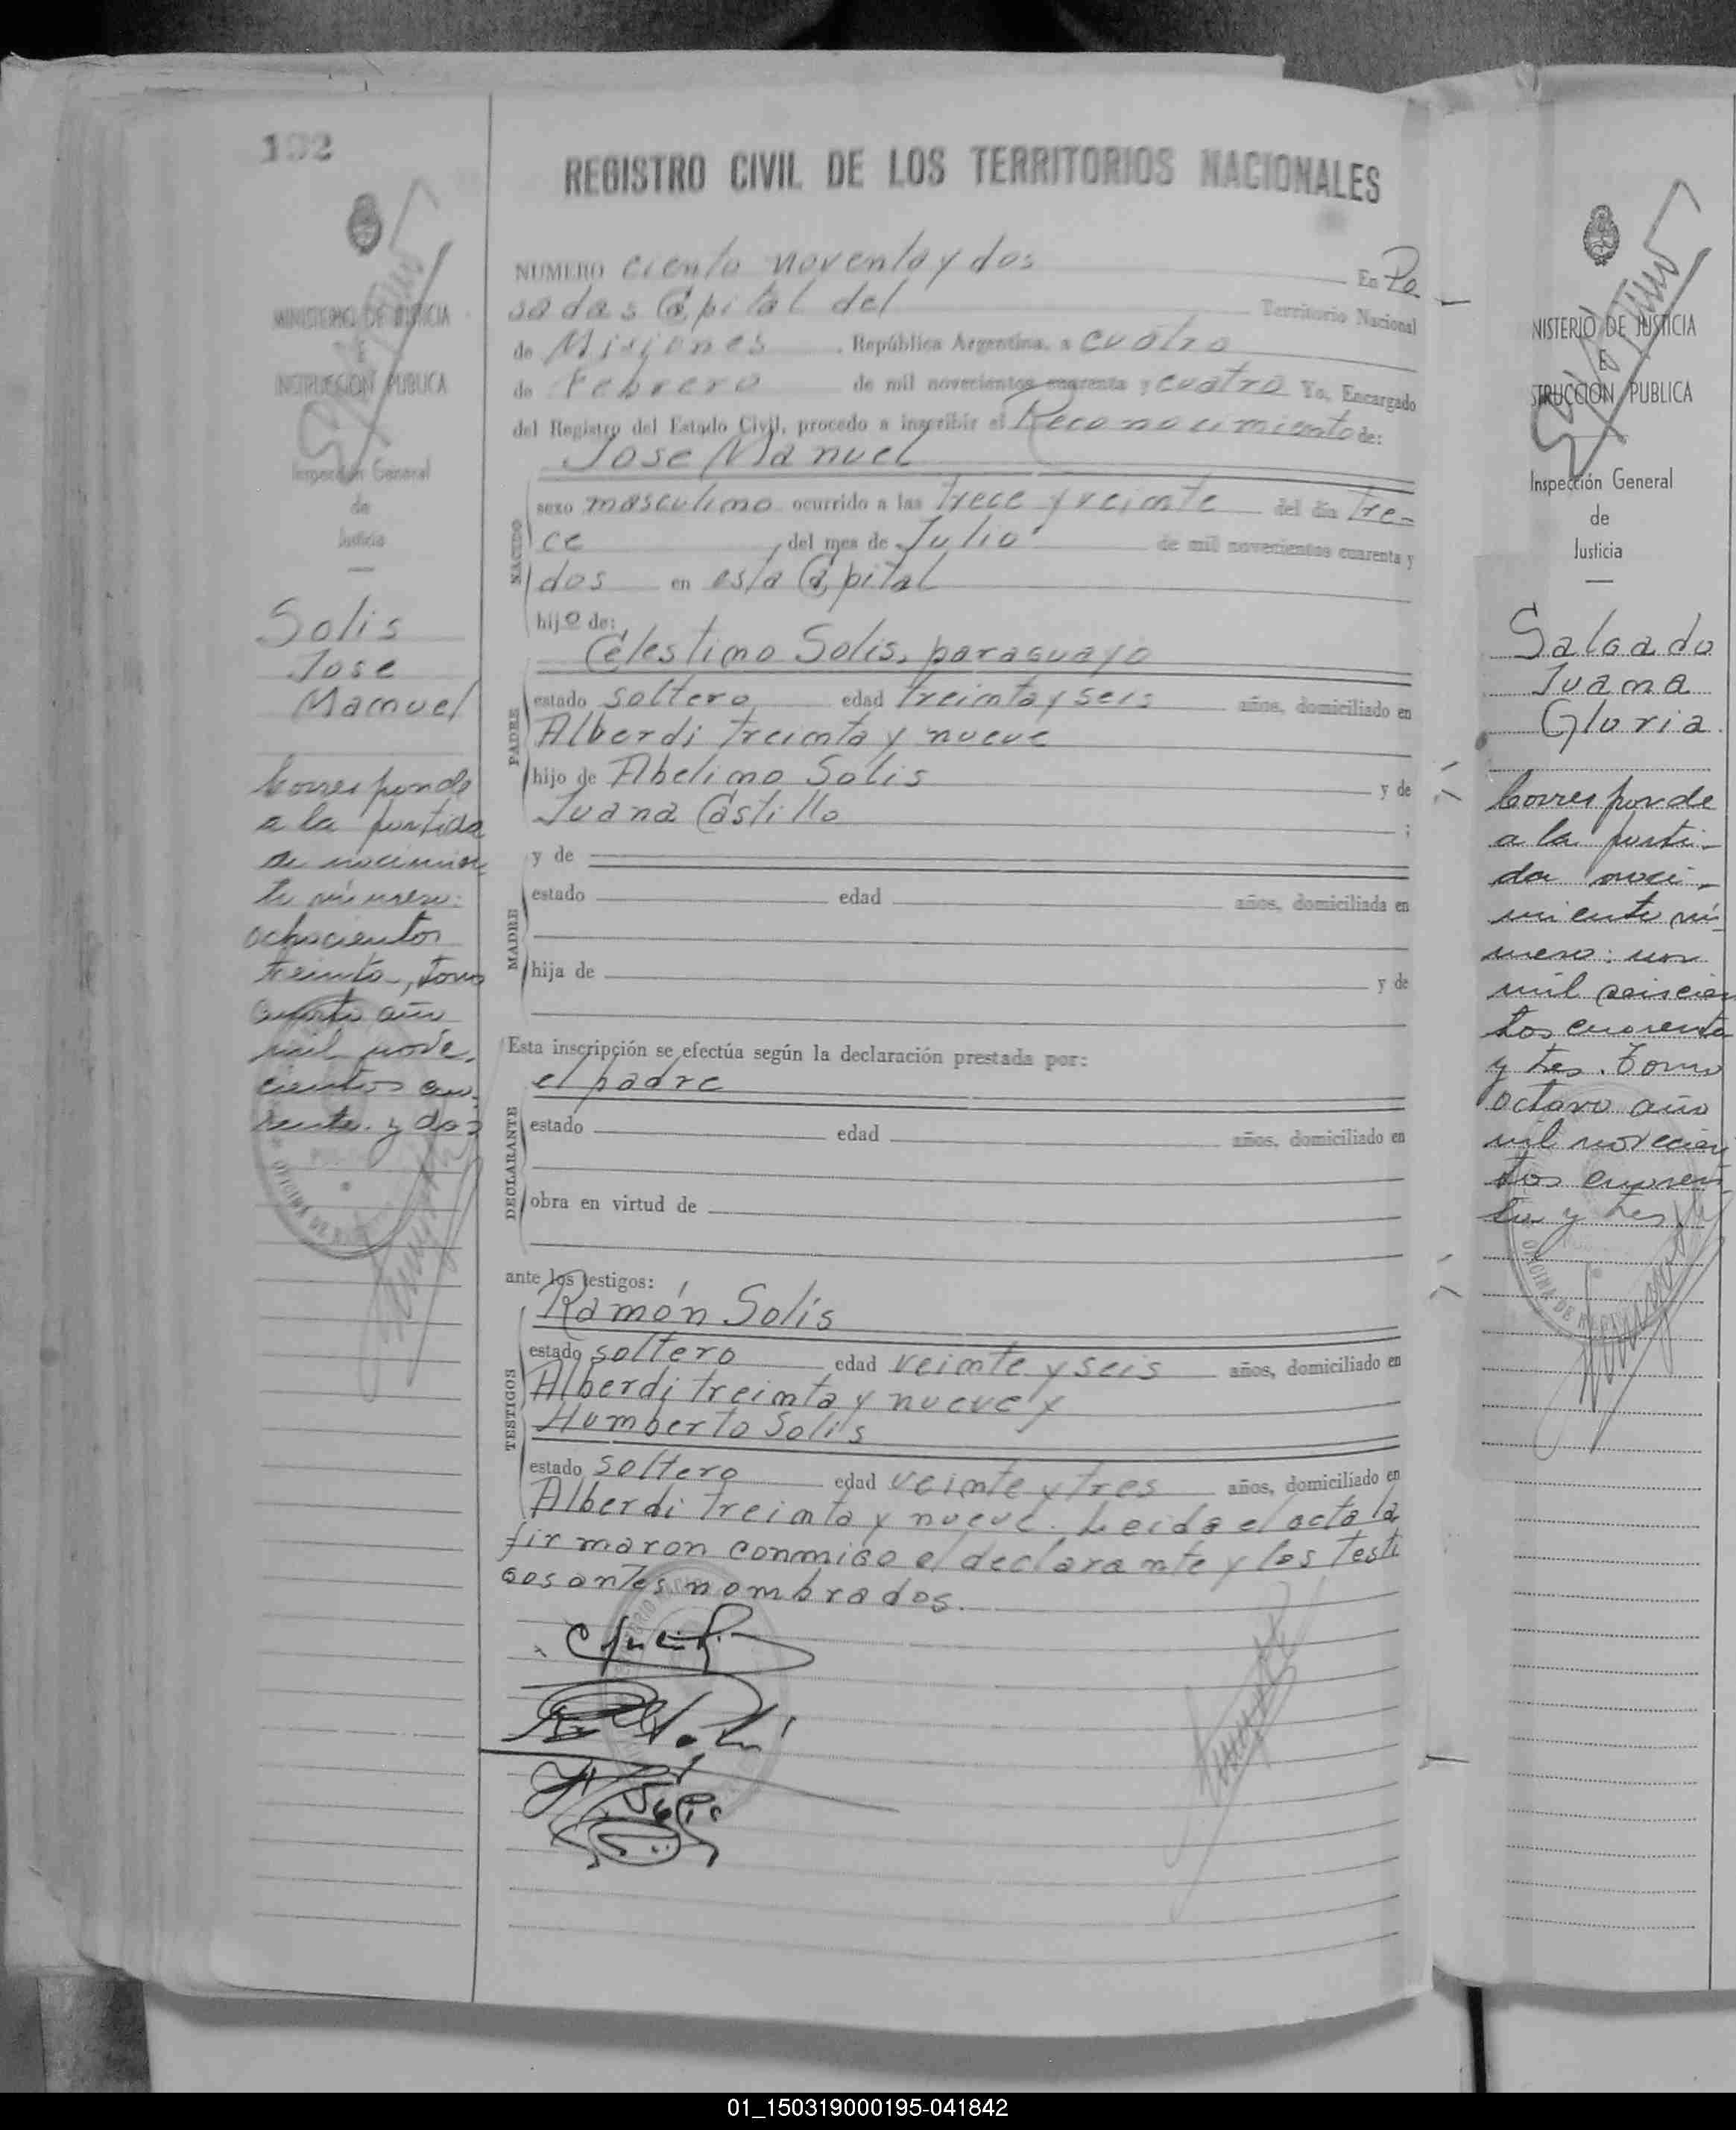 192
REGISTRO CIVIL DE LOS TERRITORIOS NACIONALES
MINISTERIO DE JUSTICIA
E
INSTRUCCION PUBLICA
Inspección General
de
Justicia
Solis
Jose
Manuel
Corresponde
a la partida
de nacimien
to número:
ochocientos
treinta, tomo
cuarto año
mil nove-
cientos cua-
renta y dos
OFICINA DE
NUMERO ciento noventa y dos En Po
sadas Capital del Territorio Nacional
de Misiones, República Argentina, a cuatro
de Febrero de mil novecientos cuarenta y cuatro Yo, Encargado
del Registro del Estado Civil, procedo a inscribir el Reconocimiento de:
Jose Manuel
NACIDO
sexo masculino ocurrido a las trece y veinte del día tre-
ce, del mes de Julio de mil novecientos cuarenta y
dos en esta Capital
hijo de:
Celestino Solis, paraguayo
PADRE
estado soltero edad treinta y seis años, domiciliado en
Alberdi treinta y nueve
hijo de Abelino Solis y de
Juana Castillo ;
y de
MADRE
estado edad años, domiciliada en
hija de y de
Esta inscripción se efectúa según la declaración prestada por:
el padre
DECLARANTE
estado edad años, domiciliado en
obra en virtud de
ante los testigos:
Ramón Solis
TESTIGOS
estado soltero edad veinte y seis años, domiciliado en
Alberdi treinta y nueve y
Humberto Solis
estado soltero edad veinte y tres años, domiciliado en
Alberdi treinta y nueve. Leida el acta la
firmaron conmigo el declarante y los testi
gos antes nombrados.
Solis
NISTERIO DE JUSTICIA
E
STRUCCION PUBLICA
Inspección General
de
Justicia
Salgado
Juana
Gloria
Corresponde
a la parti-
da naci-
miento nú-
mero: un
mil seiscien
tos cuarenta
y tres. Tomo
octavo año
mil novecien
tos cuaren
ta y tres
OFICINA DE
01_150319000195-041842